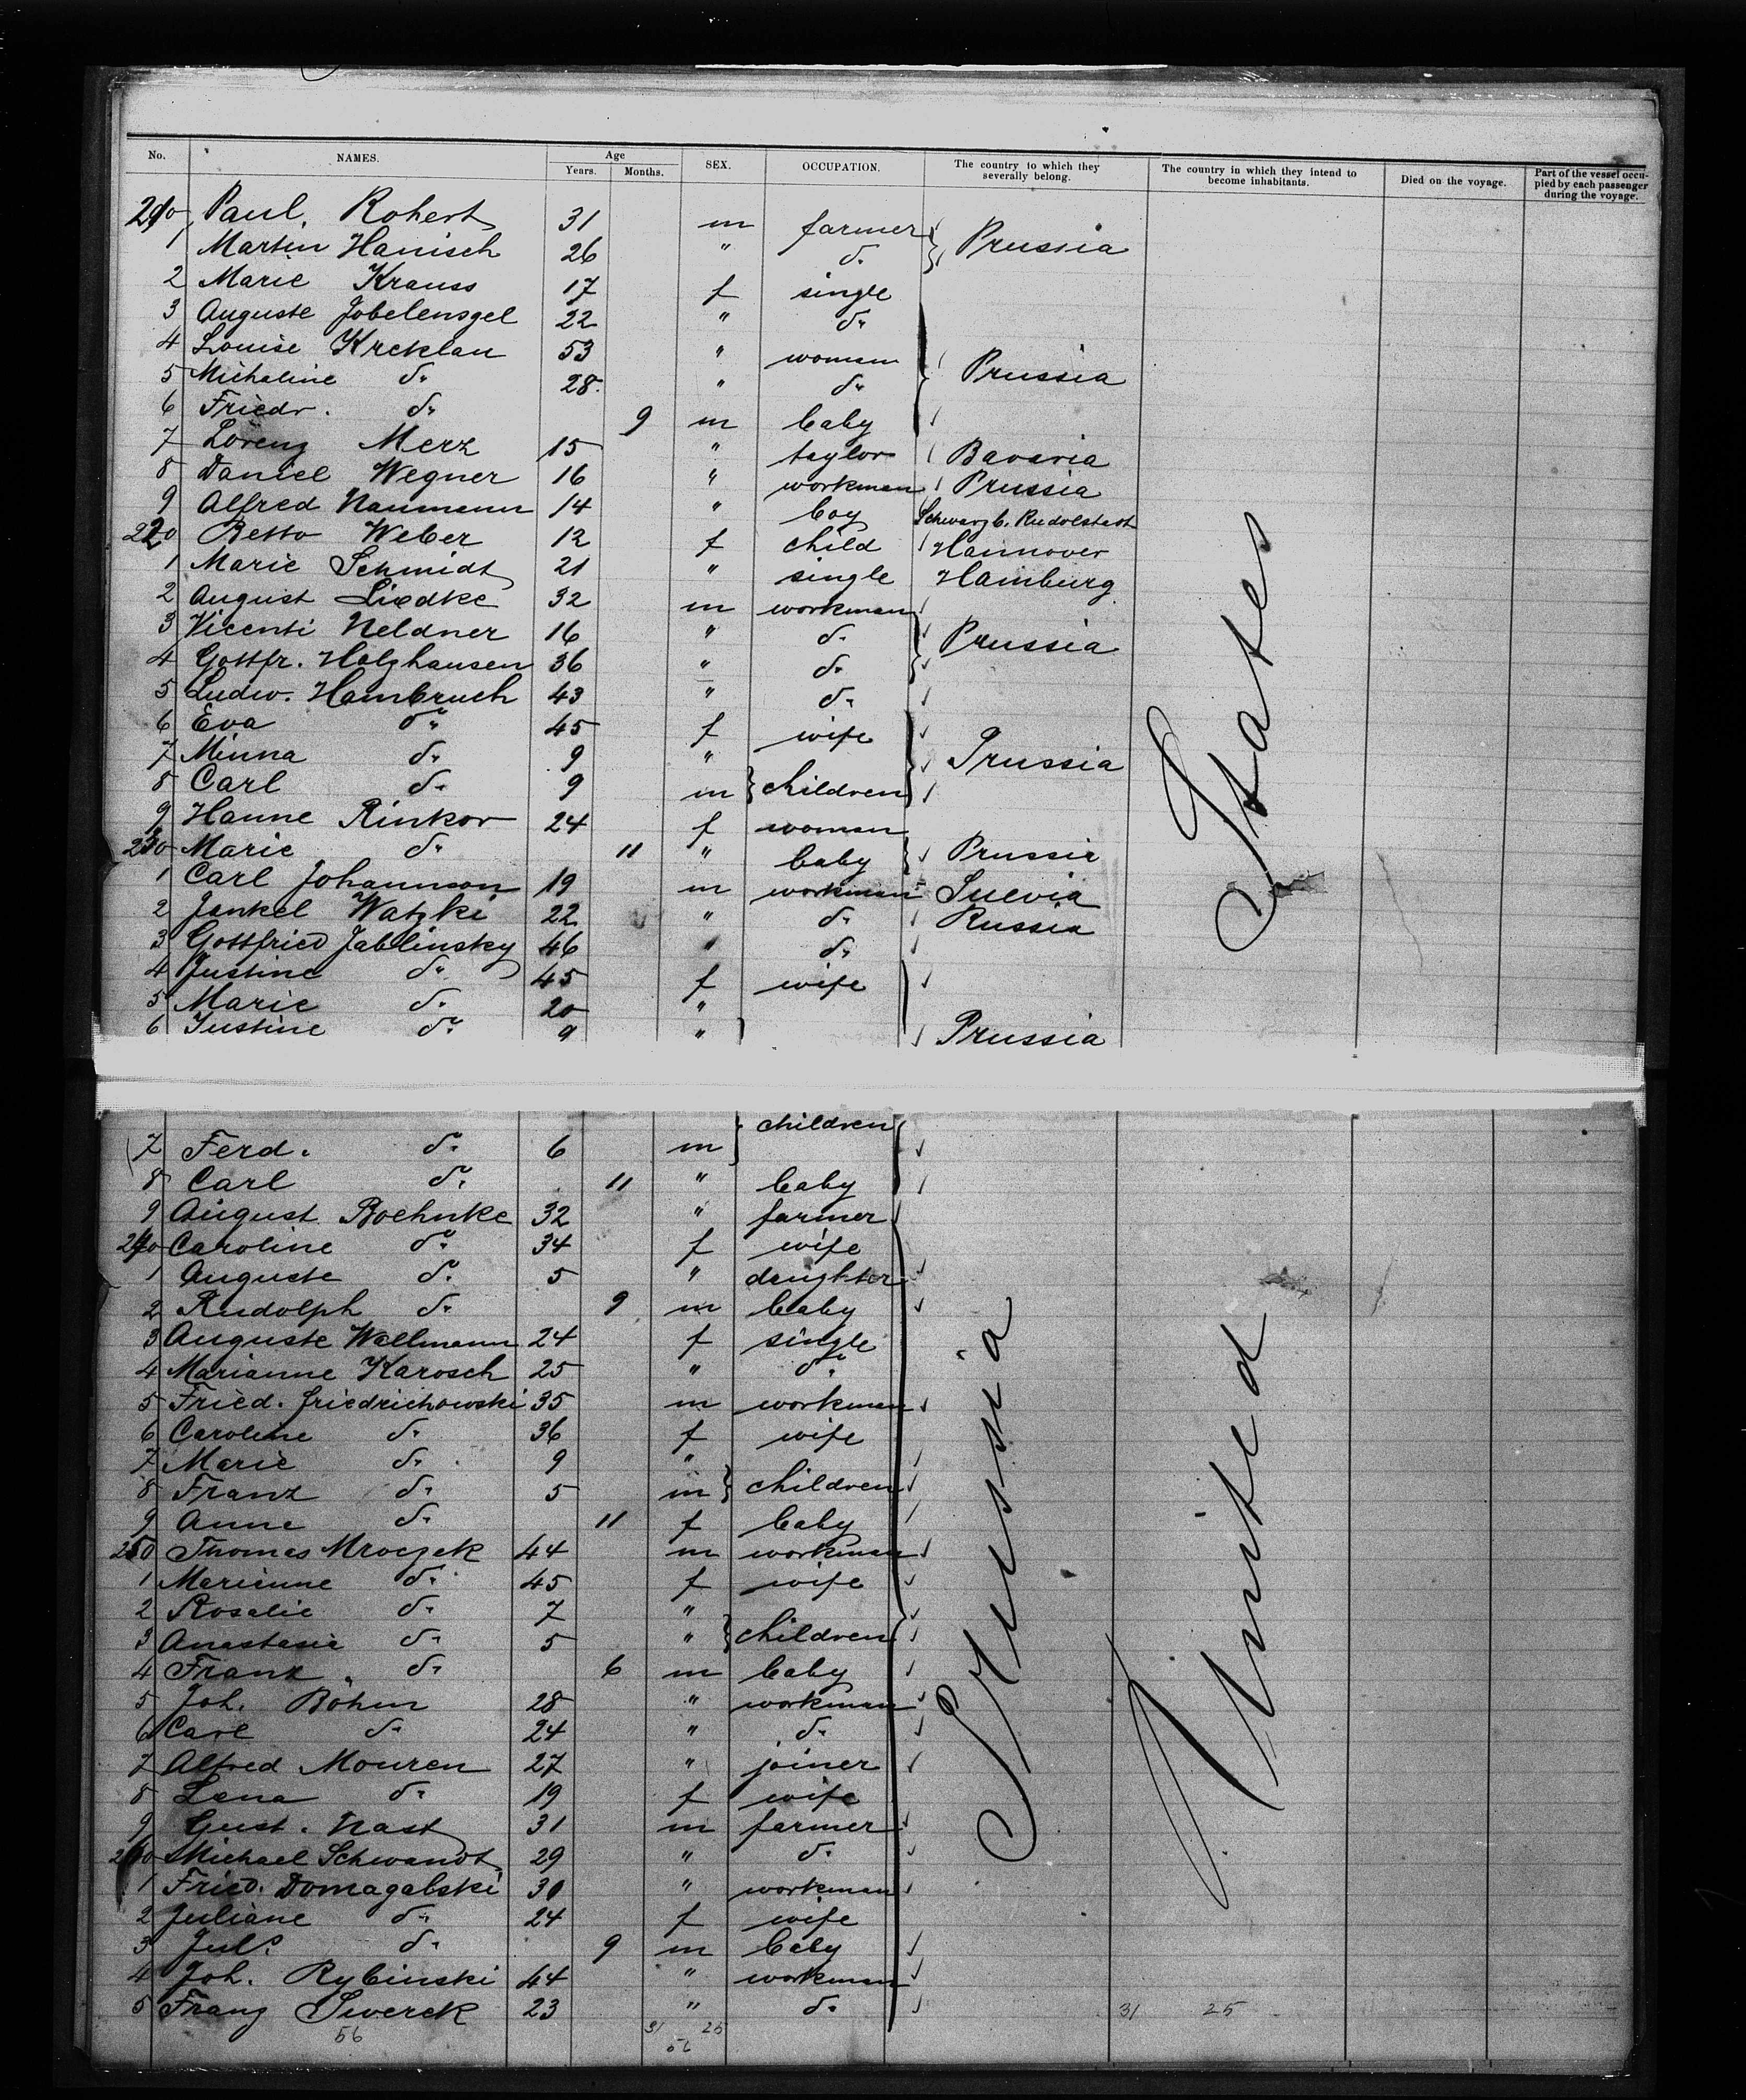 No. NAMES. Age Years. Months. SEX. OCCUPATION. The country to which they severally belong. The country in which they intend to become inhabitants. Died on the voyage. Part of the vessel occupied by each passenger during the voyage.
210 Paul Rohert 31 m farmer
1 Martin Hanisch 26 " do } Prussia
2 Marie Krauss 17 f single
3 Auguste Jobelensgel 22 " do
4 Louise Krcklau 53 " woman
5 Micholine do 28 " do } Prussia
6 Friedr. do 9 m baby
7 Lorenz Merz 15 " taylor Bavaria
8 Daniel Wegner 16 " workman Prussia
9 Alfred Naumann 14 " boy Schwarzb. Rudolstadt
220 Betto Weber 12 f child Hannover
1 Marie Schmidt 21 " single Hamburg
2 August Liedke 32 m workman
3 Vicenti Neldner 16 " do } Prussia
4 Gottfr. Holzhausen 36 " do
5 Ludw. Hambruch 43 " do
6 Eva do 45 f wife
7 Minna do 9 " } Prussia
8 Carl do 9 m } children
9 Hanne Rinkor 24 f woman
230 Marie do 11 " baby } Prussia
1 Carl Johannson 19 m workman Suevia
2 Jankel Watzki 22 " do Russia
3 Gottfried Jablinsky 46 " do
4 Justine do 45 f wife
5 Marie do 20 "
6 Justine do 9 " Prussia
children
7 Ferd. do 6 m
8 Carl do 11 " baby
9 August Boehnke 32 " farmer
240 Caroline do 34 f wife
1 Auguste do 5 " daughter
2 Rudolph do 9 m baby
3 Auguste Wellmann 24 f single
4 Marianne Karosch 25 " do
5 Fried. Friedrichowski 35 m workman
6 Caroline do 36 f wife
7 Marie do 9 "
8 Franz do 5 m } children
9 Anne do 11 f baby
250 Thomas Mroczek 44 m workman
1 Marianne do 45 f wife
2 Rosalie do 7 "
3 Anastasia do 5 " } children
4 Franz do 6 m baby
5 Joh. Böhm 28 " workman
6 Carl do 24 " do
7 Alfred Mouren 27 " joiner
8 Lena do 19 f wife
9 Gust. Nast 31 m farmer
260 Michael Schwandt 29 " do
1 Fried. Domagalski 30 " workman
2 Juliane do 24 f wife
3 Juls do 9 m baby
4 Joh. Rybinski 44 " workman
5 Franz Swerck 23 " do
56 31 25 31 25
56
Prussia
United States